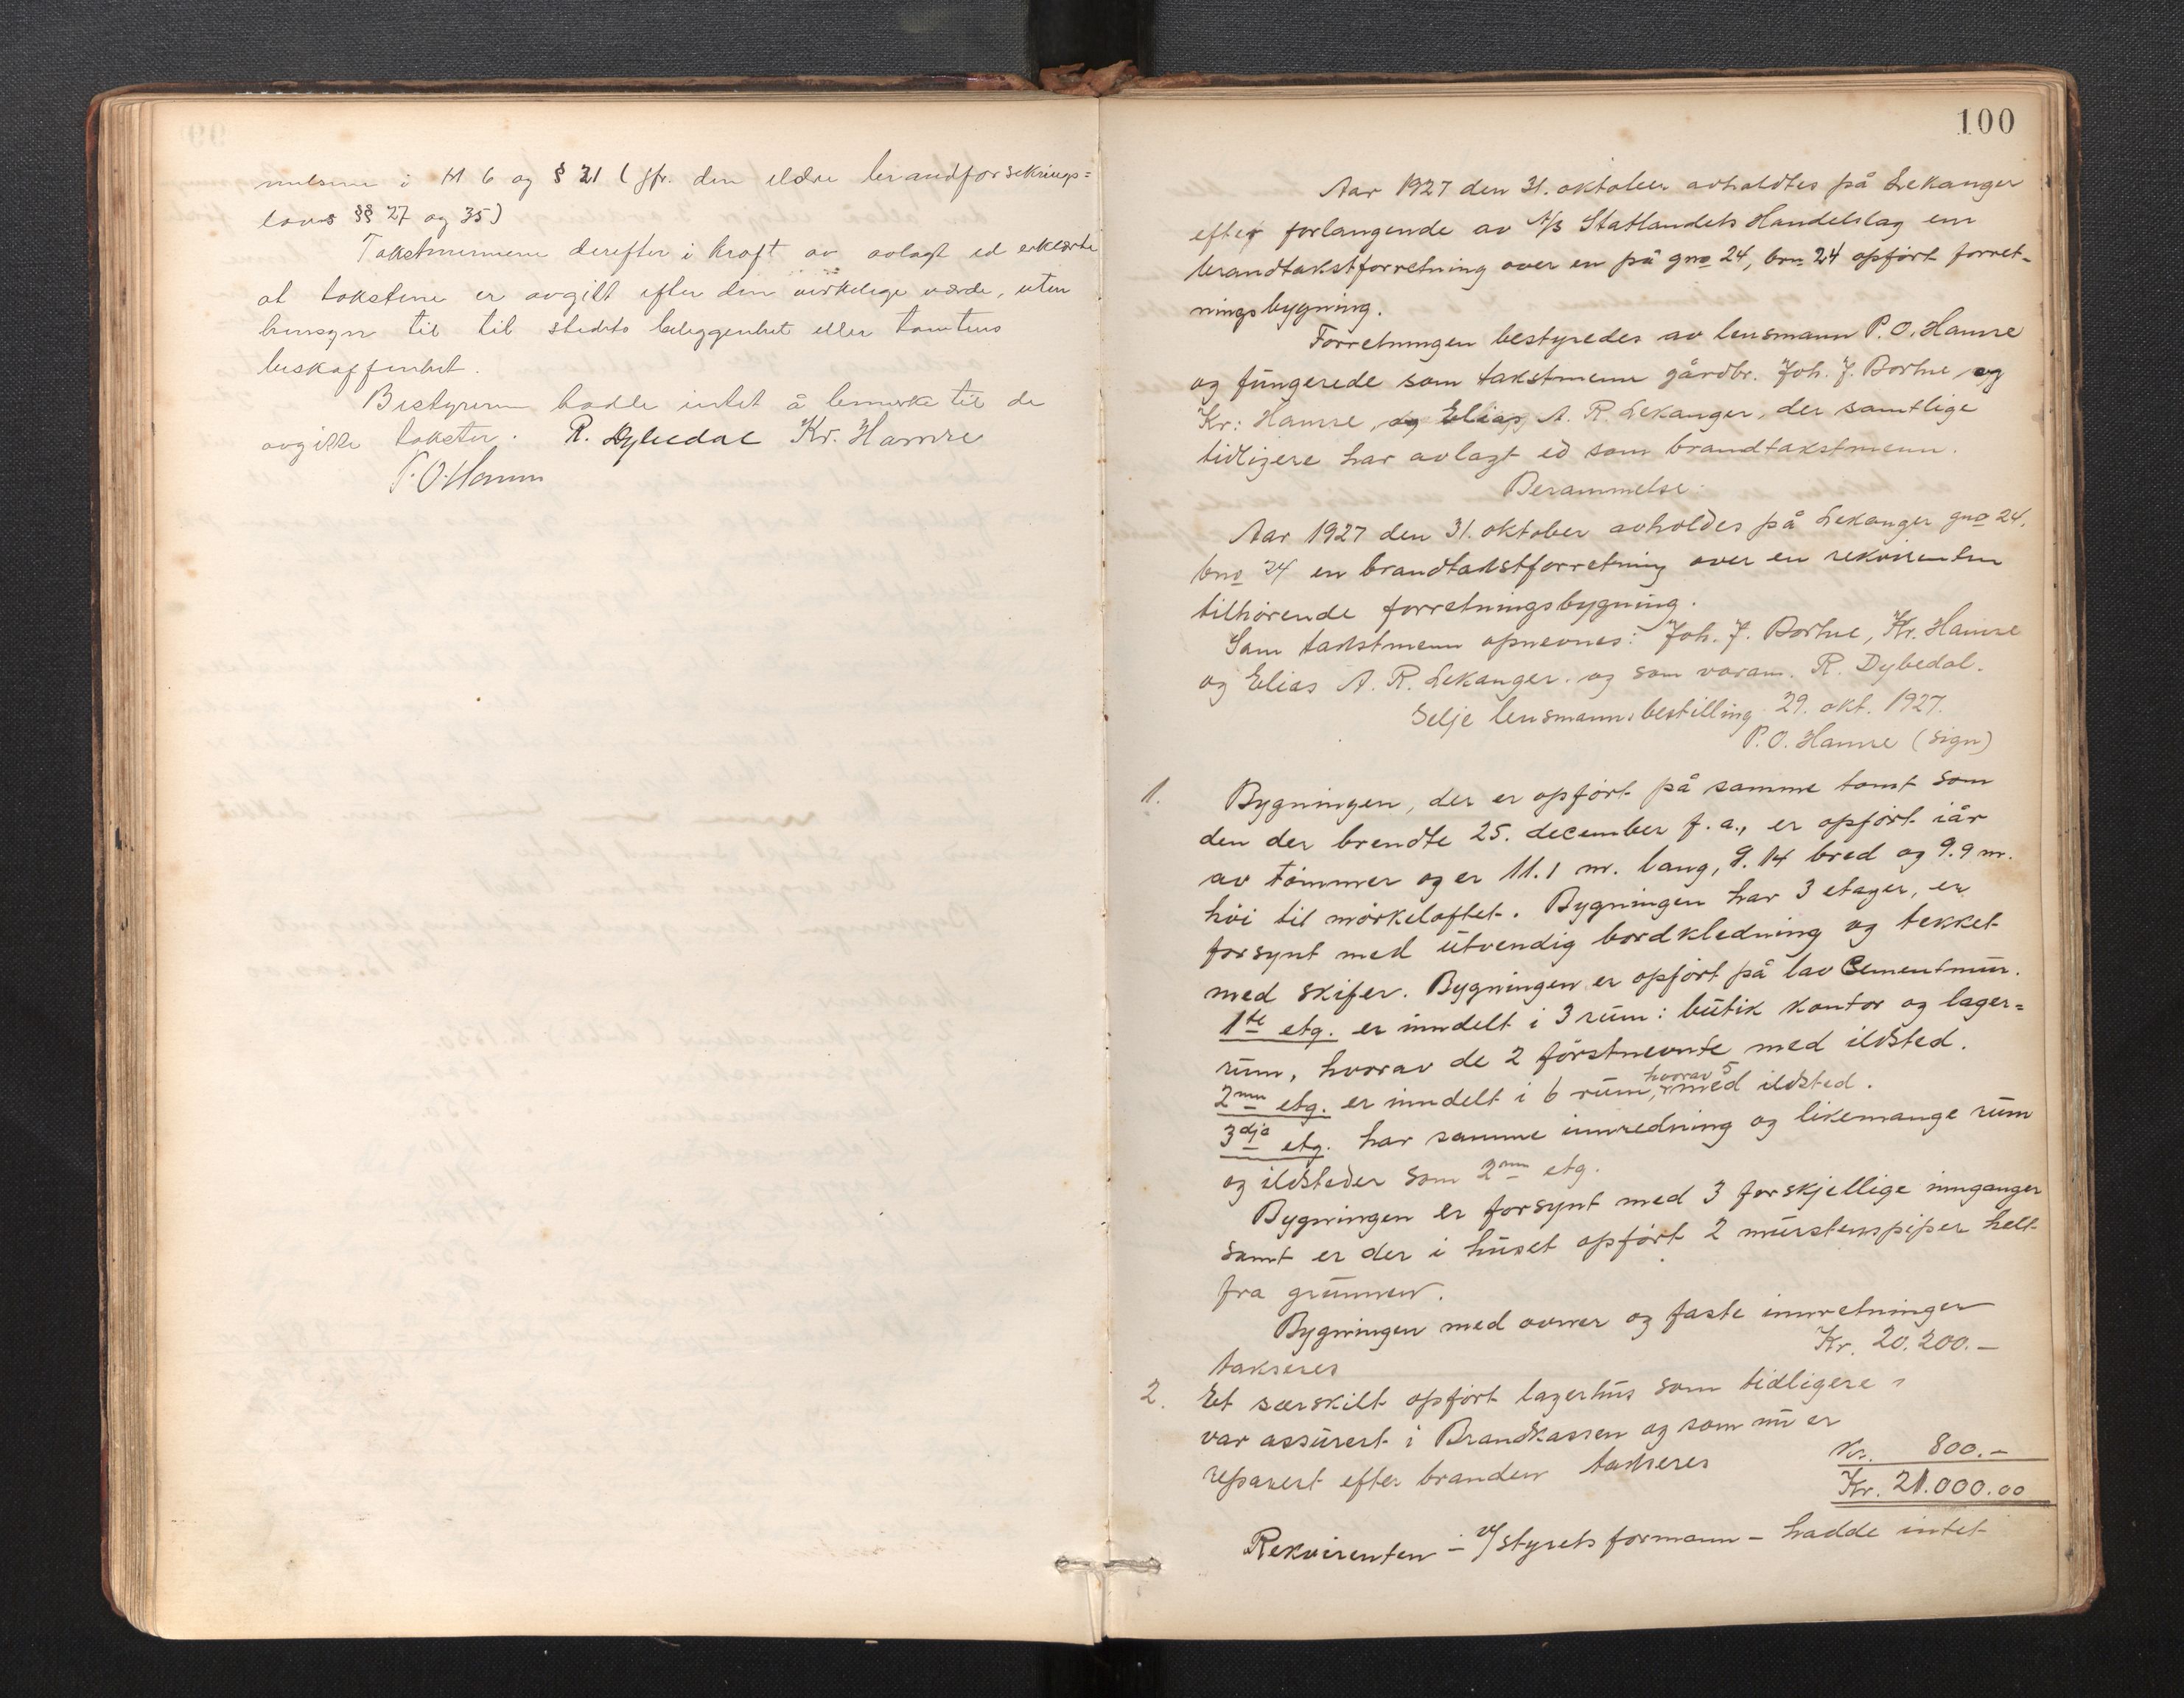 melsene i § 6 og § 21 (jfr. den eldre brandforsikrings=
lovs §§ 27 og 35)
Takstmennene derefter i kraft av avlagt ed erklærte
at takstene er avgitt efter den virkelige værde, uten
hensyn til til stedets beleggenhet eller tomtens
beskaffenhet.
Bestyreren hadde intet å bemerke til de
avgitte takster. R. Dybedal Kr. Hamre
P. O. Hamre
100
Aar 1927 den 31. oktober avholdtes på Lekanger
efter forlangende av A/S Statlandets Handelslag en
brandtakstforretning over en på gno 24, bno 24 opført forret-
ningsbygning.
Forretningen bestyredes av lensmann P. O. Hamre
og fungerede som takstmenn gårdbr. Joh. J. Borhne, og
Kr: Hamre, og Elias A. R. Lekanger, der samtlige
tidligere har avlagt ed som brandtakstmenn.
Berammelse:
Aar 1927 den 31. oktober avholdes på Lekanger gno 24,
bno 24 en brandtakstforretning over en rekvirenten
tilhørende forretningsbygning.
Som takstmenn opnevnes: Joh. J. Borhne, Kr. Hamre
og Elias A. R. Lekanger. og som varam. R. Dybedal.
Selje lensmannsbestilling 29. okt. 1927.
P. O. Hamre (sign)
1. Bygningen, der er opført på samme tomt som
den der brendte 25. december f. a., er opført iår
av tømmer og er 11.1 m. lang, 9.14 bred og 9.9 m.
høi til mørkeloftet. Bygningen har 3 etager, er
forsynt med utvendig bordkledning og tekket
med skifer. Bygningen er opført på lav Cementmur.
1ste etg. er inndelt i 3 rum: butik kontor og lager=
rum, hvorav de 2 førstnevnte med ildsted.
2nen etg. er inndelt i 6 rum, hvorav 5 med ildsted.
3dje etg. har samme innredning og likemange rum
og ildsteder som 2nen etg.
Bygningen er forsynt med 3 forskjellige innganger
samt er der i huset opført 2 murstenspiper helt
fra grunnen.
Bygningen med ovner og faste innretninger
takseres Kr. 20.200.–
2. Et særskilt opført lagerhus som tidligere
var assurert i Brandkassen og som nu er
reparert efter branden takseres Kr. 800.–
Kr. 21.000.00
Rekvirenten – v/ styrets formann – hadde intet